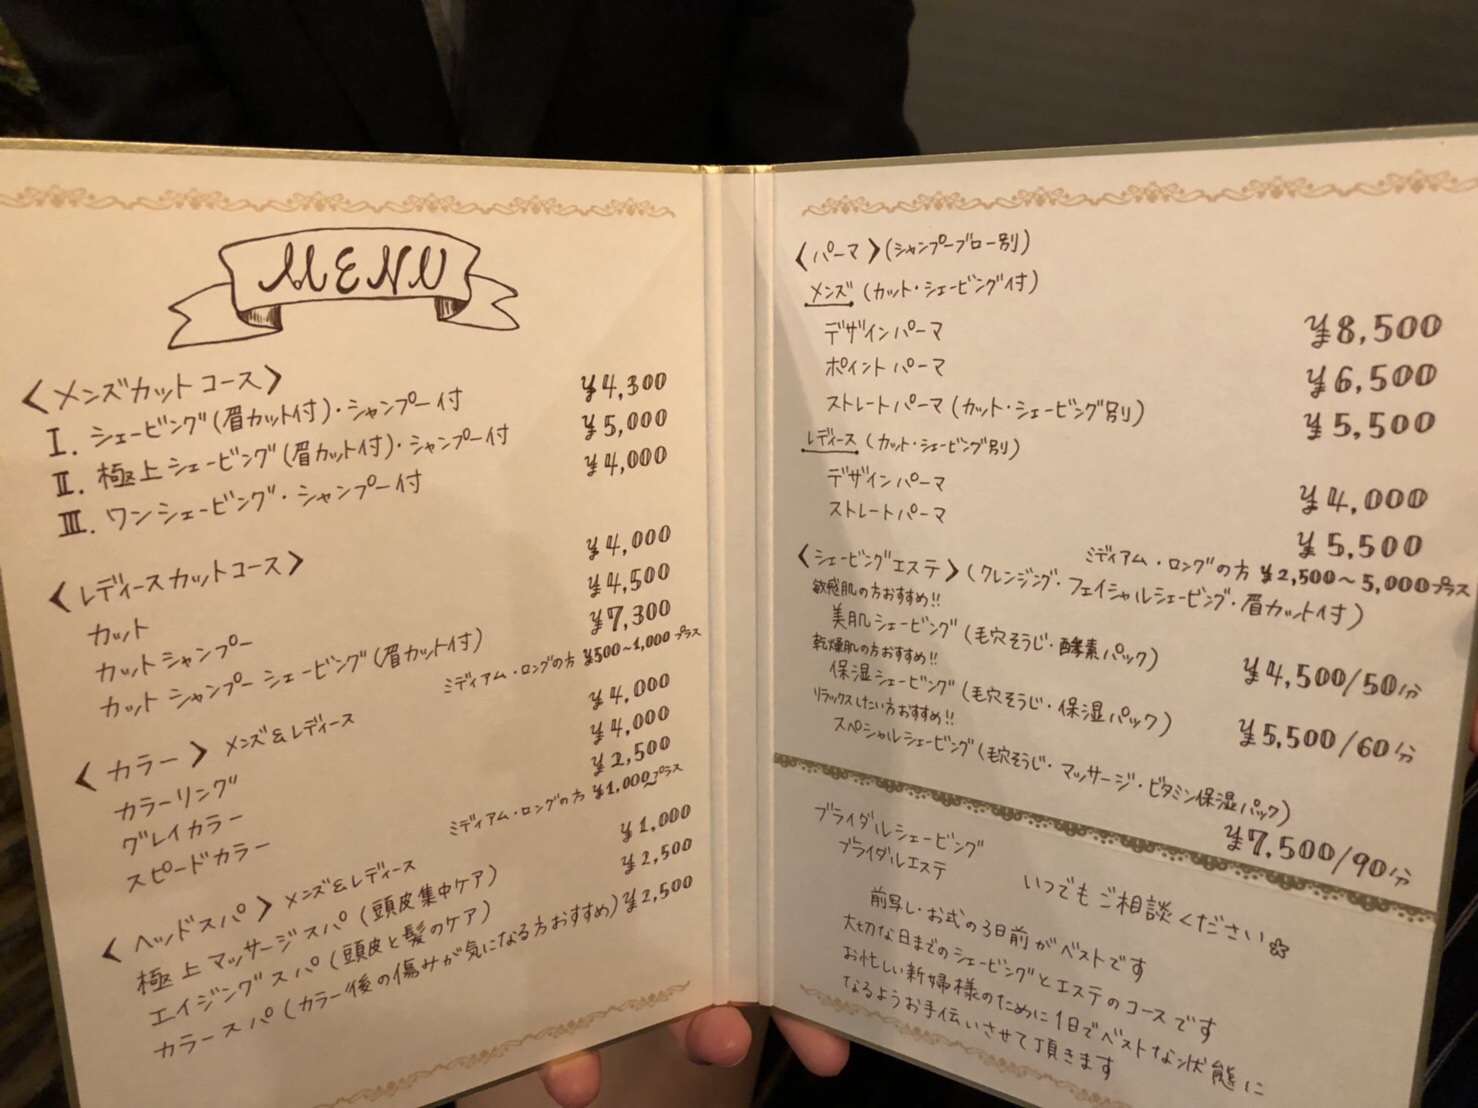 MENU
〈メンズカットコース〉
Ⅰ. シェービング(眉カット付)・シャンプー付 ¥4,300
Ⅱ. 極上シェービング(眉カット付)・シャンプー付 ¥5,000
Ⅲ. ワンシェービング・シャンプー付 ¥4,000
〈レディースカットコース〉
カット ¥4,000
カットシャンプー ¥4,500
カット シャンプー シェービング(眉カット付) ¥7,300
ミディアム・ロングの方 ¥500〜1,000プラス
〈カラー〉メンズ&レディース
カラーリング ¥4,000
グレイカラー ¥4,000
スピードカラー ¥2,500
ミディアム・ロングの方 ¥1,000〜プラス
〈ヘッドスパ〉メンズ&レディース
極上マッサージスパ(頭皮集中ケア) ¥1,000
エイジングスパ(頭皮と髪のケア) ¥2,500
カラースパ(カラー後の傷みが気になる方おすすめ) ¥2,500
〈パーマ〉(シャンプーブロー別)
メンズ(カット・シェービング付)
デザインパーマ ¥8,500
ポイントパーマ ¥6,500
ストレートパーマ(カット・シェービング別) ¥5,500
レディース(カット・シェービング別)
デザインパーマ ¥4,000
ストレートパーマ ¥5,500
ミディアム・ロングの方 ¥2,500〜5,000プラス
〈シェービングエステ〉(クレンジング・フェイシャルシェービング・眉カット付)
敏感肌の方おすすめ!!
美肌シェービング(毛穴そうじ・酵素パック) ¥4,500/50分
乾燥肌の方おすすめ!!
保湿シェービング(毛穴そうじ・保湿パック) ¥5,500/60分
リラックスしたい方おすすめ!!
スペシャルシェービング(毛穴そうじ・マッサージ・ビタミン保湿パック)
¥7,500/90分
ブライダルシェービング
ブライダルエステ
いつでもご相談ください
前写し・お式の3日前がベストです
大切な日までのシェービングとエステのコースです
お忙しい新婦様のために1日でベストな状態に
なるようお手伝いさせて頂きます